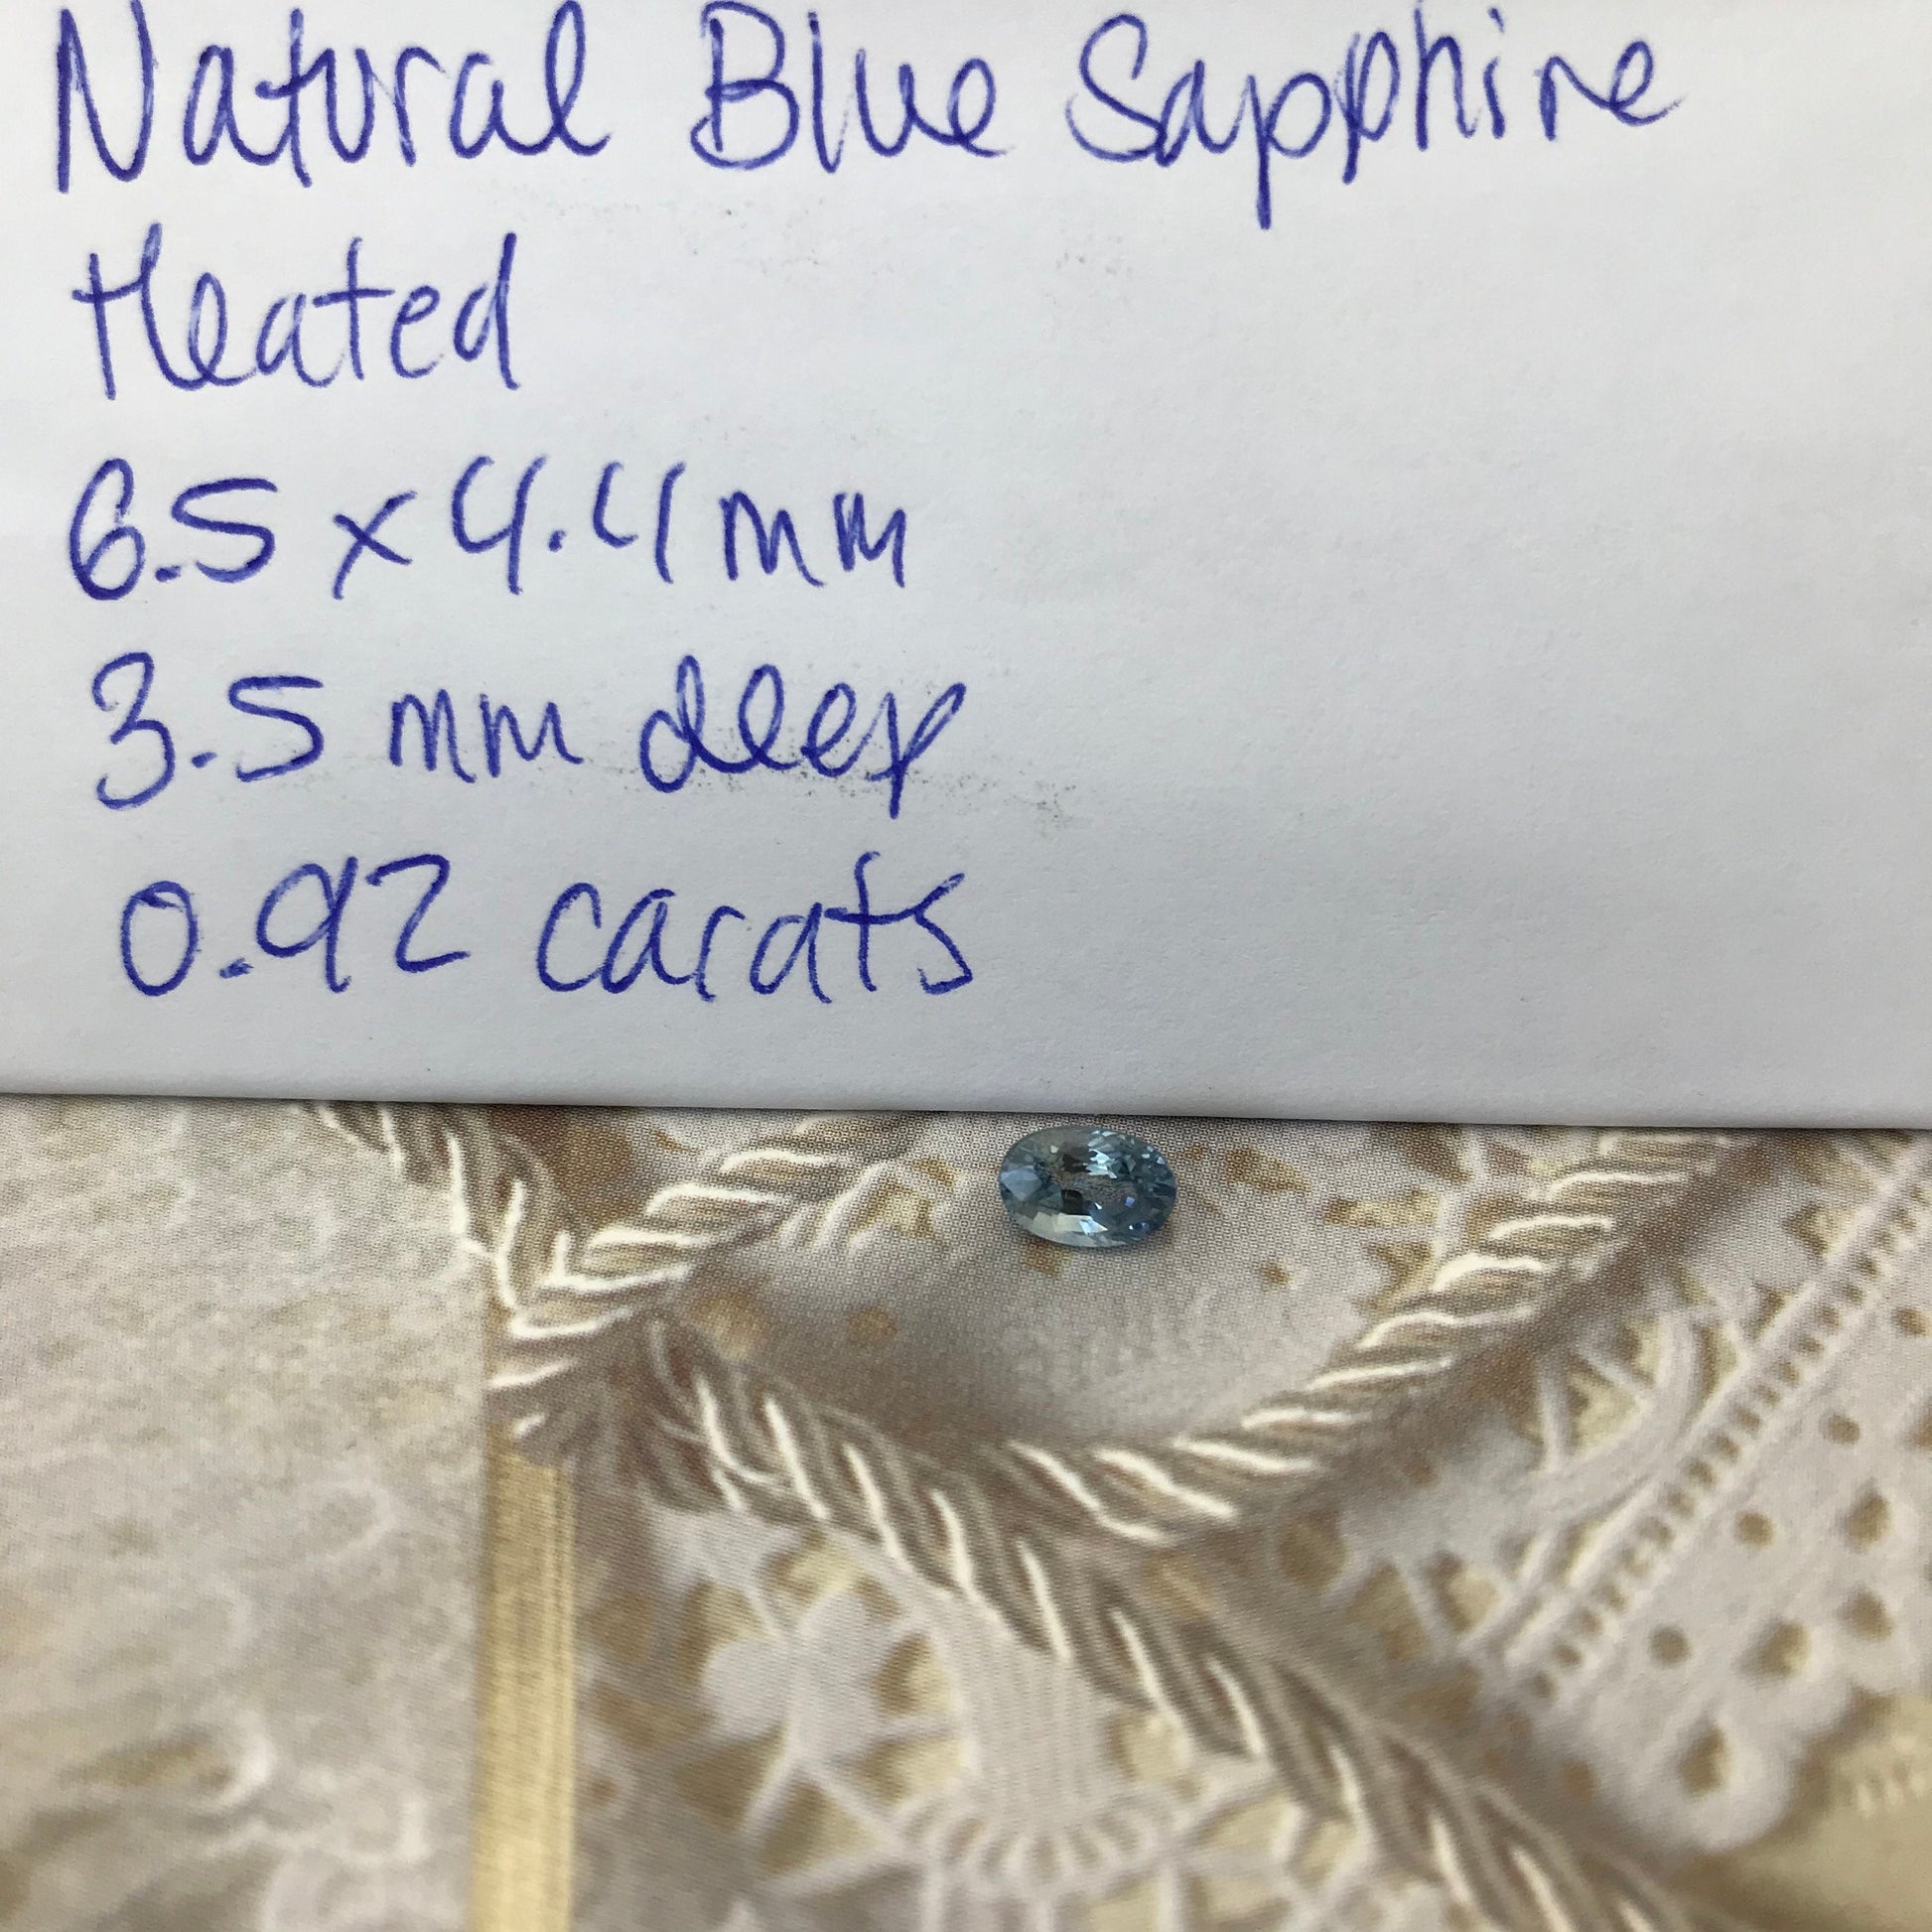 Natural Blue Sapphire
Heated
6.5 x 4.4 mm
3.5 mm deep
0.92 carats